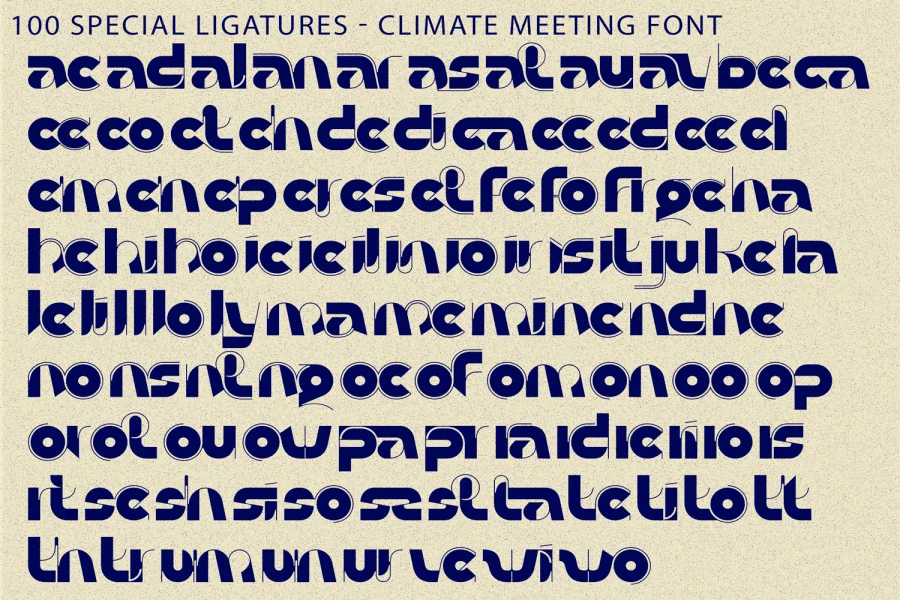 100 SPECIAL LIGATURES - CLIMATE MEETING FONT
ac ad al an ar as at au av be ca
ce co ct ch de di ea ec ed ee el
em en ep er es et fe fo fr ge ha
he hi ho ic ie il in io ir is it ju ke la
le li ll lo ly ma me mi nc nd ne
no ns nt ng oc of om on oo op
or ot ou ow pa pr ra rd re ri ro rs
rt se sh si so ss st ta te ti to tt
th tr um un ur ve wi wo